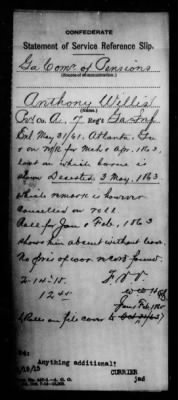 CONFEDERATE
Statement of Service Reference Slip.
Ga Comr of Pensions
(Source of communication.)
Anthony Willis
(Name)
Pvt Co A, 7 Reg't Ga Inf
Enl May 31/61. Atlanta, Ga
on M/R for Mch & Apr, 1863
last on which borne is
shown Deserted 3 May, 1863
which remark is however
cancelled on roll.
Roll for Jan & Feb, 1863
shows him absent without leave.
No pris of war record found.
2-14-15
Anything additional?
CURRIER
jad